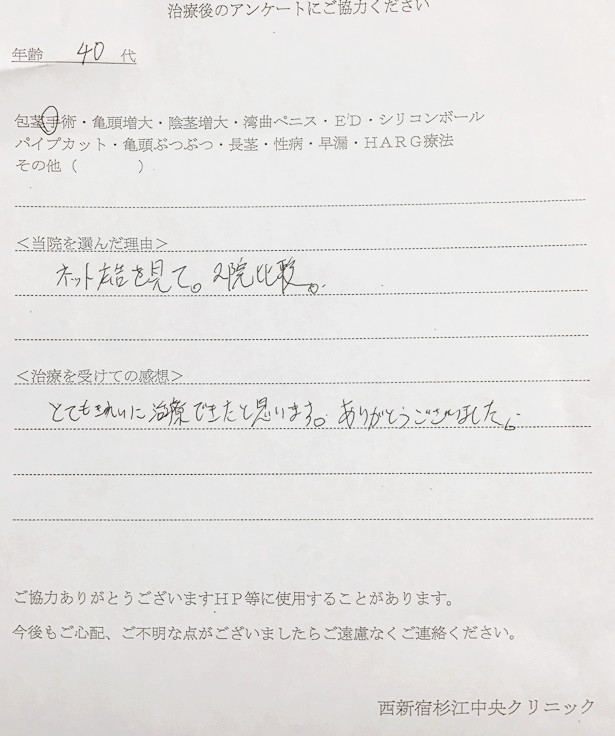 治療後のアンケートにご協力ください
年齢 40 代
包茎手術・亀頭増大・陰茎増大・湾曲ペニス・ED・シリコンボール
パイプカット・亀頭ぶつぶつ・長茎・性病・早漏・HARG療法
その他（　　　）
＜当院を選んだ理由＞
ネット広告を見て。2院比較。
＜治療を受けての感想＞
とてもきれいに治療できたと思います。ありがとうございました。
ご協力ありがとうございますHP等に使用することがあります。
今後もご心配、ご不明な点がございましたらご遠慮なくご連絡ください。
西新宿杉江中央クリニック